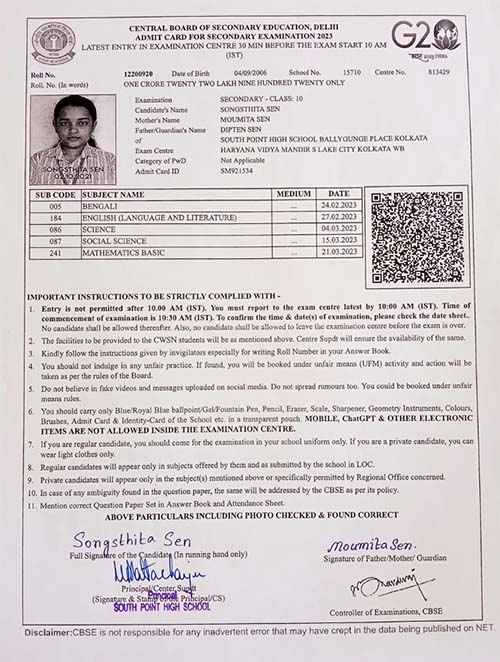 CENTRAL BOARD OF SECONDARY EDUCATION, DELHI
ADMIT CARD FOR SECONDARY EXAMINATION 2023
LATEST ENTRY IN EXAMINATION CENTRE 30 MIN BEFORE THE EXAM START 10 AM
(IST)
G20
2023 INDIA
Roll No. 12200920 Date of Birth 04/09/2006 School No. 15710 Centre No. 813429
Roll. No. (In words) ONE CRORE TWENTY TWO LAKH NINE HUNDRED TWENTY ONLY
Examination SECONDARY - CLASS: 10
Candidate's Name SONGSTHITA SEN
Mother's Name MOUMITA SEN
Father/Guardian's Name DIPTEN SEN
of SOUTH POINT HIGH SCHOOL BALLYGUNGE PLACE KOLKATA
Exam Centre HARYANA VIDYA MANDIR S LAKE CITY KOLKATA WB
Category of PwD Not Applicable
Admit Card ID SM921534
SONGSTHITA SEN
02.10.2021
SUB CODE SUBJECT NAME MEDIUM DATE
005 BENGALI ... 24.02.2023
184 ENGLISH (LANGUAGE AND LITERATURE) ... 27.02.2023
086 SCIENCE ... 04.03.2023
087 SOCIAL SCIENCE ... 15.03.2023
241 MATHEMATICS BASIC ... 21.03.2023
IMPORTANT INSTRUCTIONS TO BE STRICTLY COMPLIED WITH -
1. Entry is not permitted after 10.00 AM (IST). You must report to the exam centre latest by 10:00 AM (IST). Time of
commencement of examination is 10:30 AM (IST). To confirm the time & date(s) of examination, please check the date sheet..
No candidate shall be allowed thereafter. Also, no candidate shall be allowed to leave the examination centre before the exam is over.
2. The facilities to be provided to the CWSN students will be as mentioned above. Centre Supdt will ensure the availability of the same.
3. Kindly follow the instructions given by invigilators especially for writing Roll Number in your Answer Book.
4. You should not indulge in any unfair practice. If found, you will be booked under unfair means (UFM) activity and action will be
taken as per the rules of the Board.
5. Do not believe in fake videos and messages uploaded on social media. Do not spread rumours too. You could be booked under unfair
means rules.
6. You should carry only Blue/Royal Blue ballpoint/Gel/Fountain Pen, Pencil, Eraser, Scale, Sharpener, Geometry Instruments, Colours,
Brushes, Admit Card & Identity-Card of the School etc. in a transparent pouch. MOBILE, ChatGPT & OTHER ELECTRONIC
ITEMS ARE NOT ALLOWED INSIDE THE EXAMINATION CENTRE.
7. If you are regular candidate, you should come for the examination in your school uniform only. If you are a private candidate, you can
wear light clothes only.
8. Regular candidates will appear only in subjects offered by them and as submitted by the school in LOC.
9. Private candidates will appear only in the subject(s) mentioned above or specifically permitted by Regional Office concerned.
10. In case of any ambiguity found in the question paper, the same will be addressed by the CBSE as per its policy.
11. Mention correct Question Paper Set in Answer Book and Attendance Sheet.
ABOVE PARTICULARS INCLUDING PHOTO CHECKED & FOUND CORRECT
Songsthita Sen
Full Signature of the Candidate (In running hand only)
Moumita Sen.
Signature of Father/Mother/ Guardian
Principal/Center Supdt
(Signature & Stamp of the Principal/CS)
Principal
SOUTH POINT HIGH SCHOOL
Controller of Examinations, CBSE
Disclaimer:CBSE is not responsible for any inadvertent error that may have crept in the data being published on NET.